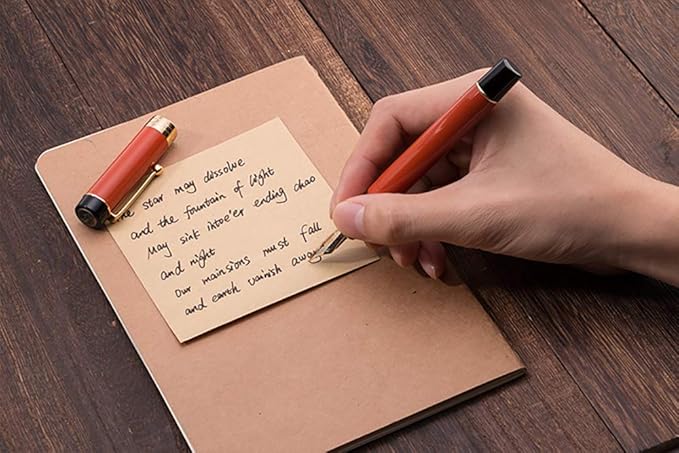 star may dissolve
and the fountain of light
May sink intoe'er ending chao
and night
our mainsions must fall
and earth vanish away